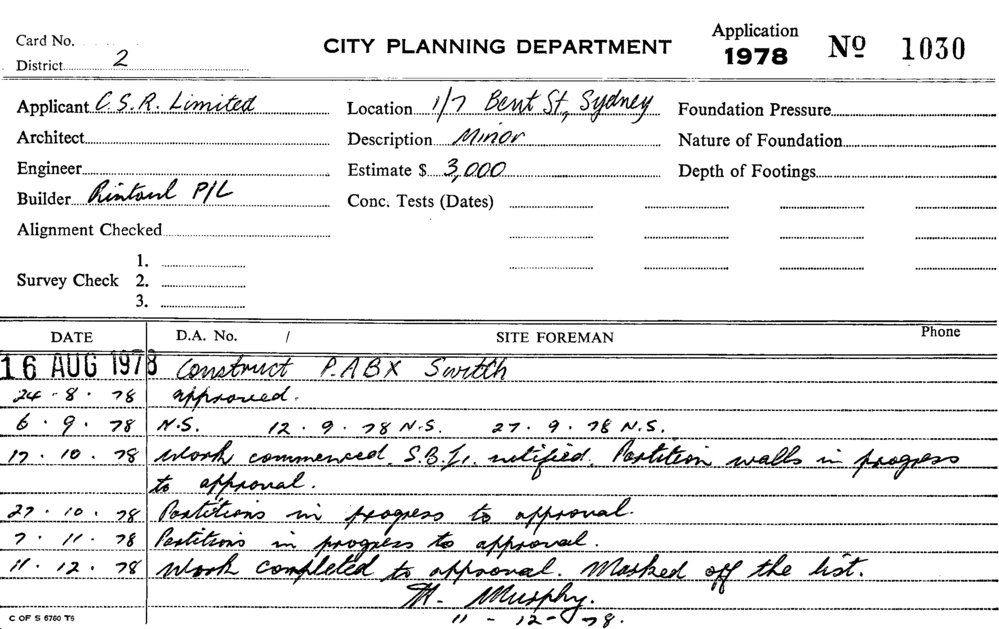 Card No.
District 2
CITY PLANNING DEPARTMENT
Application
1978
Nº 1030
Applicant C.S.R. Limited
Architect
Engineer
Builder Rintoul P/L
Alignment Checked
Survey Check 1.
2.
3.
Location 1/7 Bent St., Sydney
Description Minor
Estimate $ 3,000
Conc. Tests (Dates)
Foundation Pressure
Nature of Foundation
Depth of Footings
DATE D.A. No. / SITE FOREMAN Phone
16 AUG 1978 Construct P.ABX Switch
24 - 8 . 78 approved.
6 . 9 . 78 N.S. 12 . 9 . 78 N.S. 27 . 9 . 78 N.S.
17 . 10 . 78 Work commenced. S.B.I. notified. Partition walls in progress
to approval.
27 . 10 . 78 Partitions in progress to approval.
7 . 11 . 78 Partitions in progress to approval.
11 . 12 . 78 Work completed to approval. Marked off the list.
M. Murphy.
11 - 12 - 78.
C OF S 6760 T5